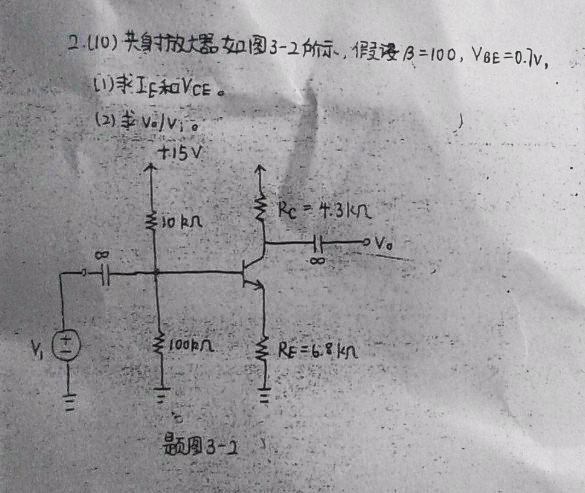 2.(10) 共射放大器如图3-2所示，假设β=100，VBE=0.7V，
(1)求IE和VCE。
(2)求Vo/Vi。
+15V
10kΩ
RC = 4.3kΩ
∞
Vo
∞
Vi
+
−
100kΩ
RE=6.8kΩ
题图3-2